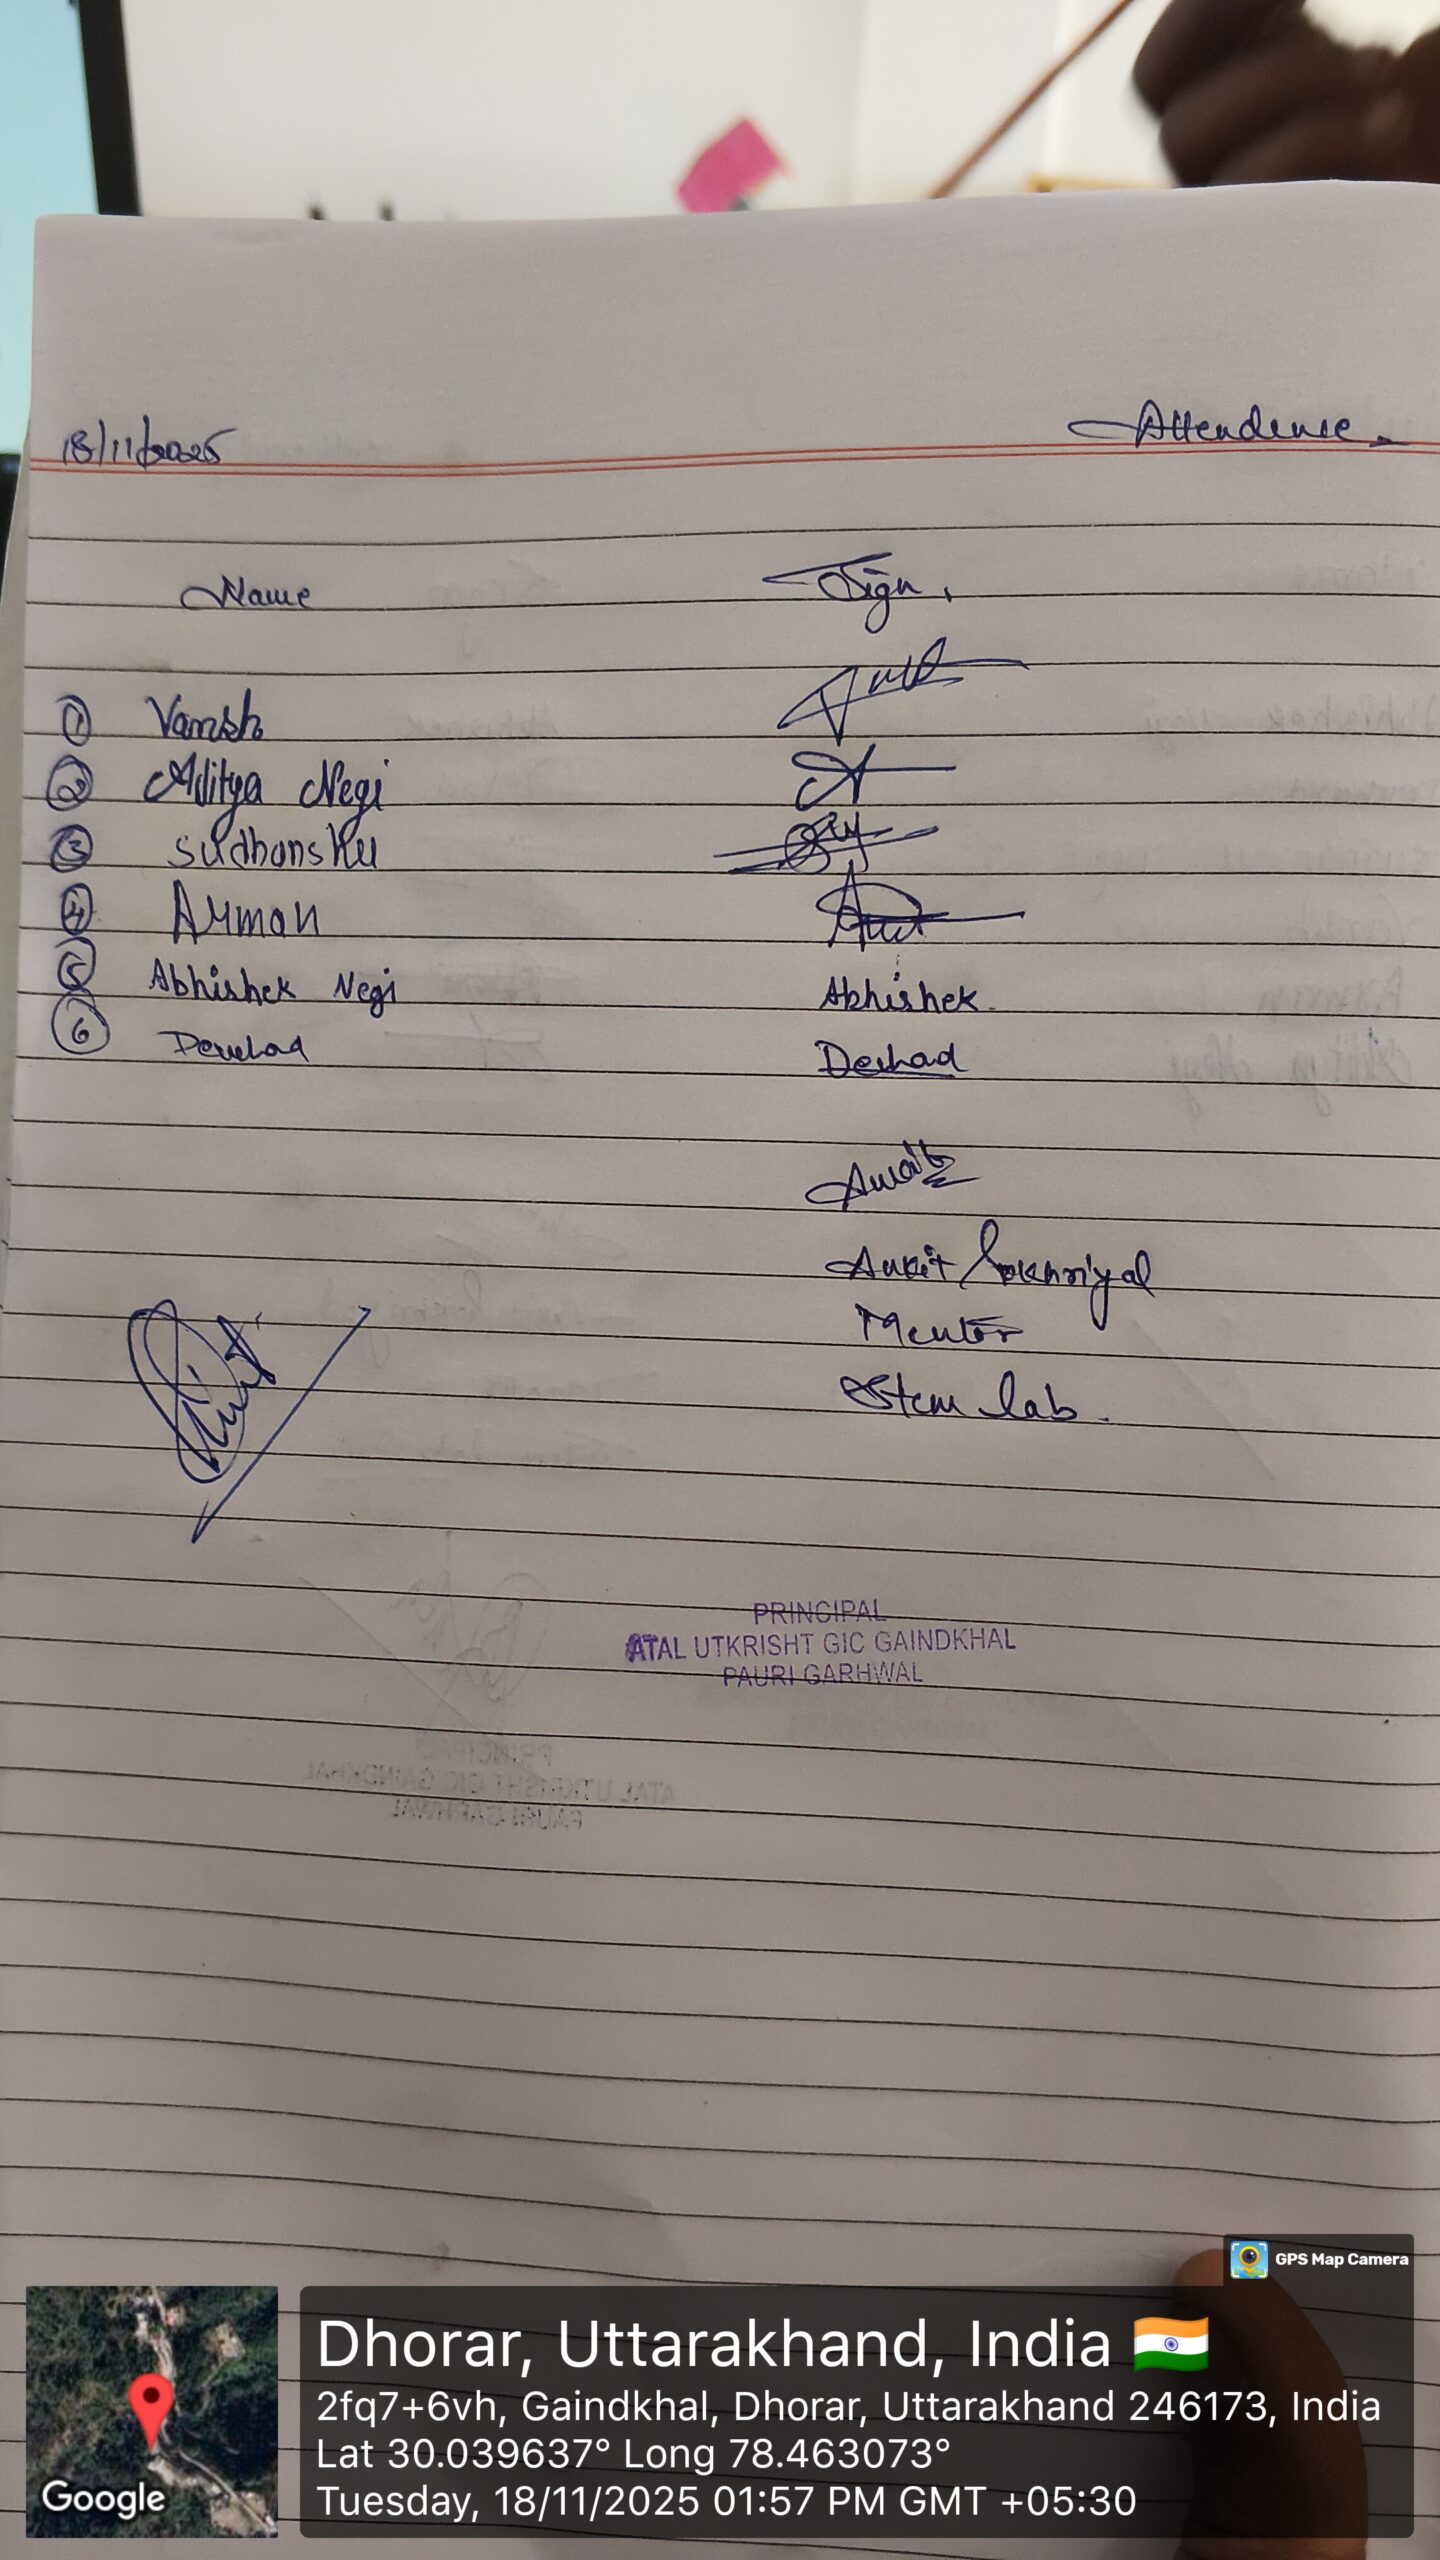 18/11/2025 Attendence
Name Sign
1 Vansh
2 Aditya Negi
3 Sudhanshu
4 Arman
5 Abhishek Negi Abhishek
6
Ankit Pokhriyal
Mentor
Stem lab.
PRINCIPAL
ATAL UTKRISHT GIC GAINDKHAL
PAURI GARHWAL
GPS Map Camera
Dhorar, Uttarakhand, India
2fq7+6vh, Gaindkhal, Dhorar, Uttarakhand 246173, India
Lat 30.039637° Long 78.463073°
Tuesday, 18/11/2025 01:57 PM GMT +05:30
Google